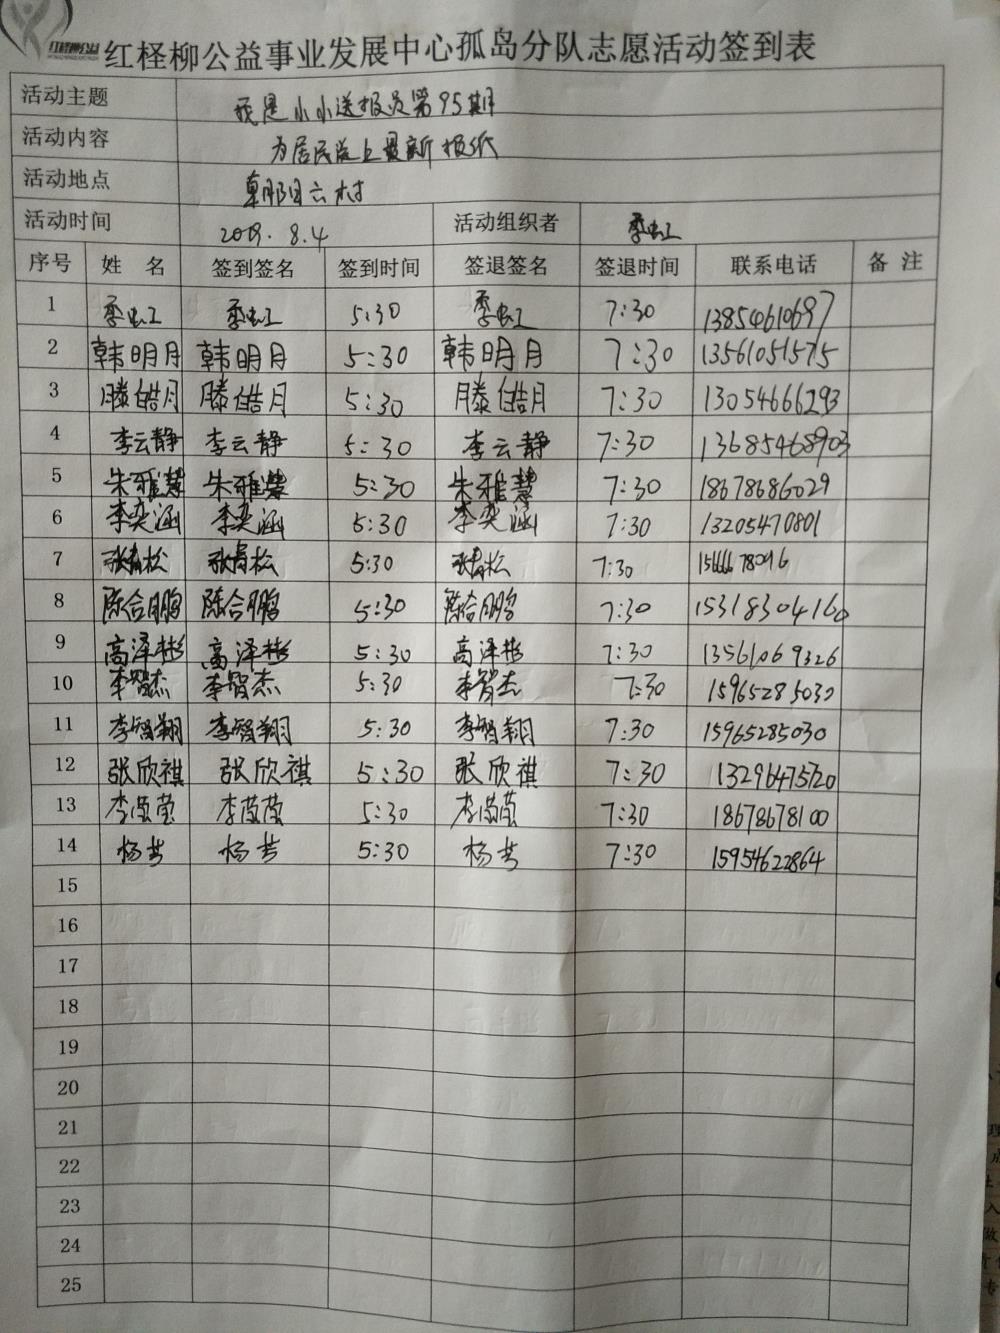 红柽柳公益
红柽柳公益事业发展中心孤岛分队志愿活动签到表
活动主题 我是小小送报员第95期
活动内容 为居民送上最新报纸
活动地点 朝阳六村
活动时间 2019.8.4 活动组织者 季虹
序号 姓 名 签到签名 签到时间 签退签名 签退时间 联系电话 备 注
1 季虹 季虹 5:30 季虹 7:30 13854610697
2 韩明月 韩明月 5:30 韩明月 7:30 13561051575
3 滕皓月 滕皓月 5:30 滕皓月 7:30 13054666293
4 李云静 李云静 5:30 李云静 7:30 13685468903
5 朱雅慧 朱雅慧 5:30 朱雅慧 7:30 18678686029
6 李奕涵 李奕涵 5:30 李奕涵 7:30 13205470801
7 张青松 张青松 5:30 张青松 7:30
8 陈合鹏 陈合鹏 5:30 陈合鹏 7:30 15318304160
9 高泽彬 高泽彬 5:30 高泽彬 7:30 13561069326
10 李智杰 李智杰 5:30 李智杰 7:30 15965285030
11 李智翔 李智翔 5:30 李智翔 7:30 15965285030
12 张欣祺 张欣祺 5:30 张欣祺 7:30 13296475720
13 5:30 7:30 18678678100
14 杨芳 杨芳 5:30 杨芳 7:30 15954622864
15
16
17
18
19
20
21
22
23
24
25